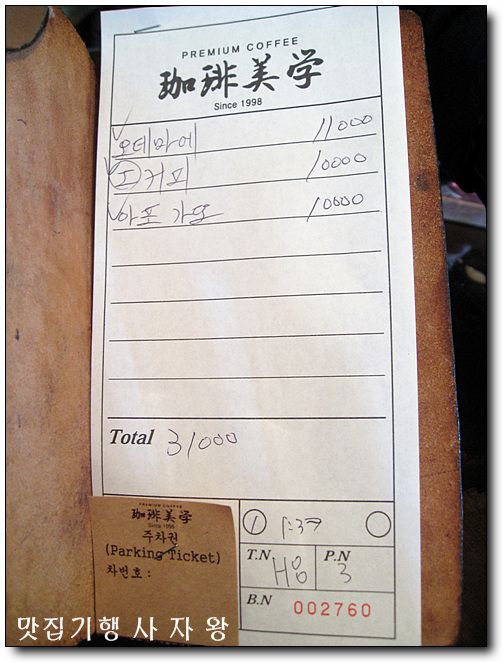 PREMIUM COFFEE
珈琲美学
Since 1998
오데마에 11000
커피 10000
아포가또 10000
Total 31000
PREMIUM COFFEE
珈琲美学
Since 1998
주차권
(Parking Ticket)
차번호:
1
T.N
P.N 3
B.N 002760
맛집기행 사자왕